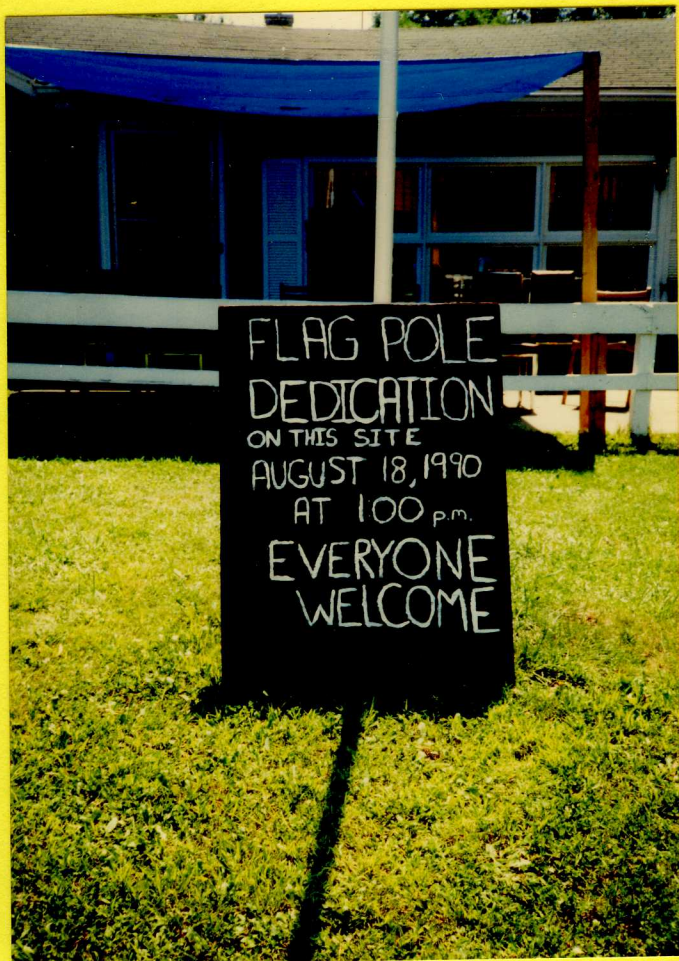 FLAG POLE
DEDICATION
ON THIS SITE
AUGUST 18, 1990
AT 1:00 p.m.
EVERYONE
WELCOME